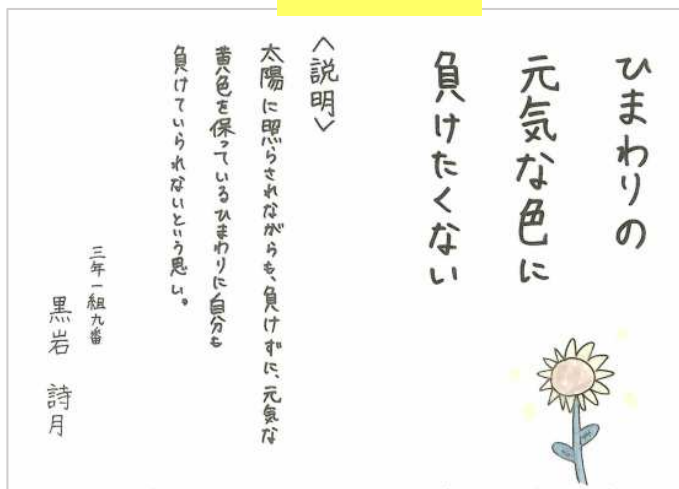 ひまわりの
元気な色に
負けたくない
〈説明〉
太陽に照らされながらも、負けずに、元気な
黄色を保っているひまわりに自分も
負けていられないという思い。
三年一組九番
黒岩 詩月